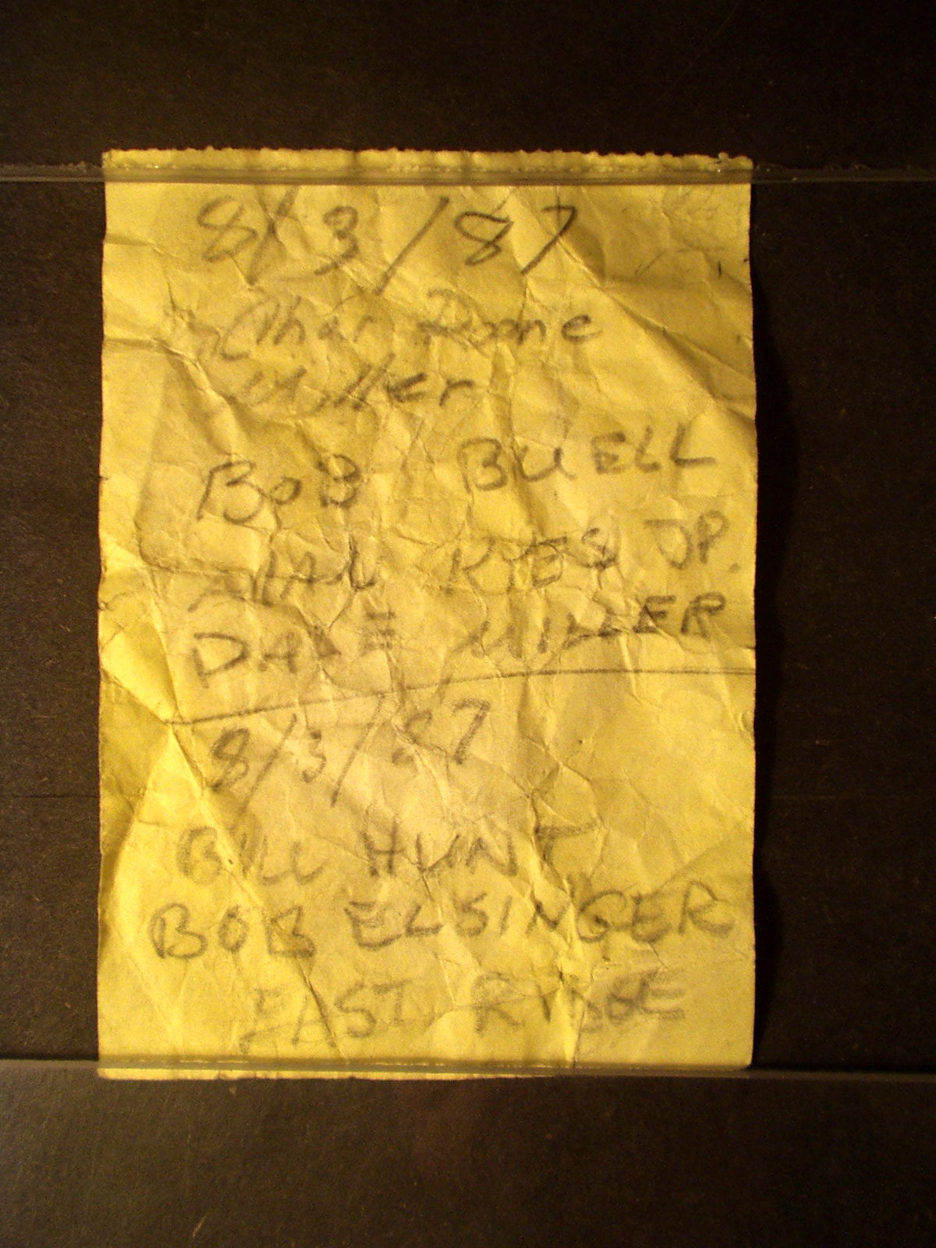 8/3/87
Char Rome
Miller
BOB BUELL
HAL KIES JR.
DALE MILLER
8/3/87
BILL HUNT
BOB ELSINGER
EAST RIDGE